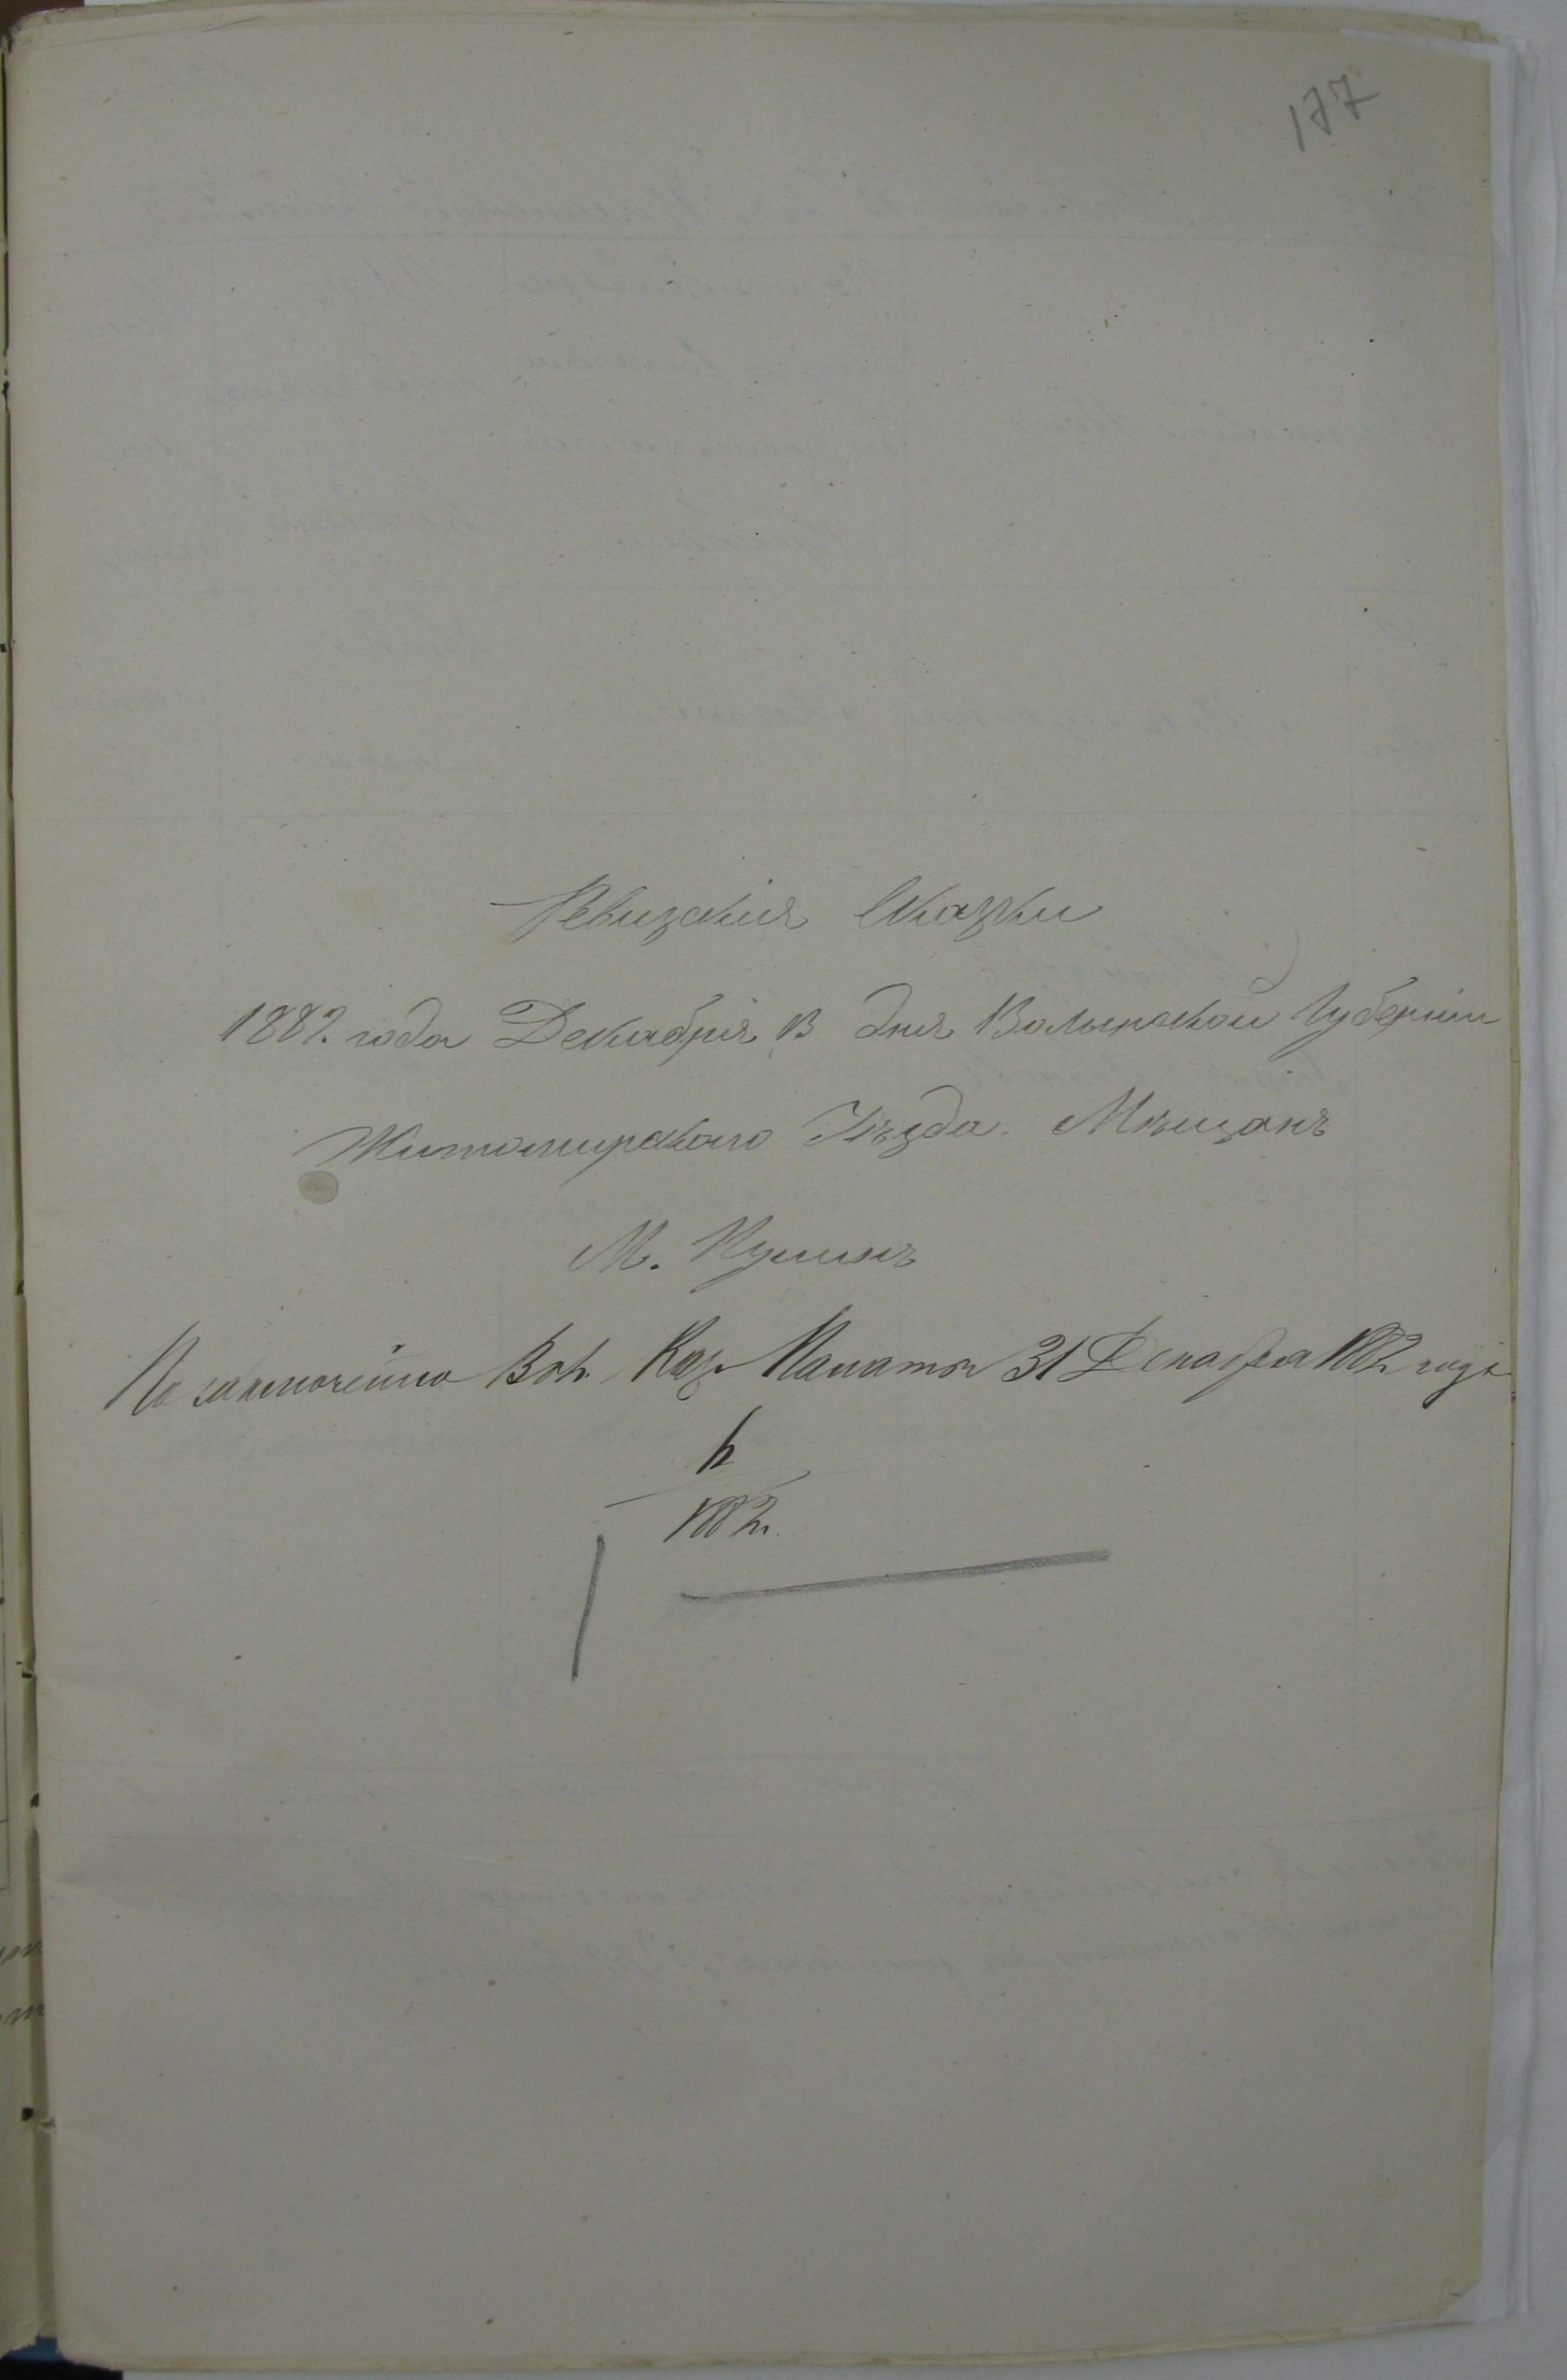 177
Ревизскія Сказки
1882 года Декабрія 13 дня Волынской Губерніи
Житомирскаго Уѣзда. Мѣщанъ
М. Кулинъ
По заключенію Вол. Каз. Палаты 31 Декабря 1882 года
1882